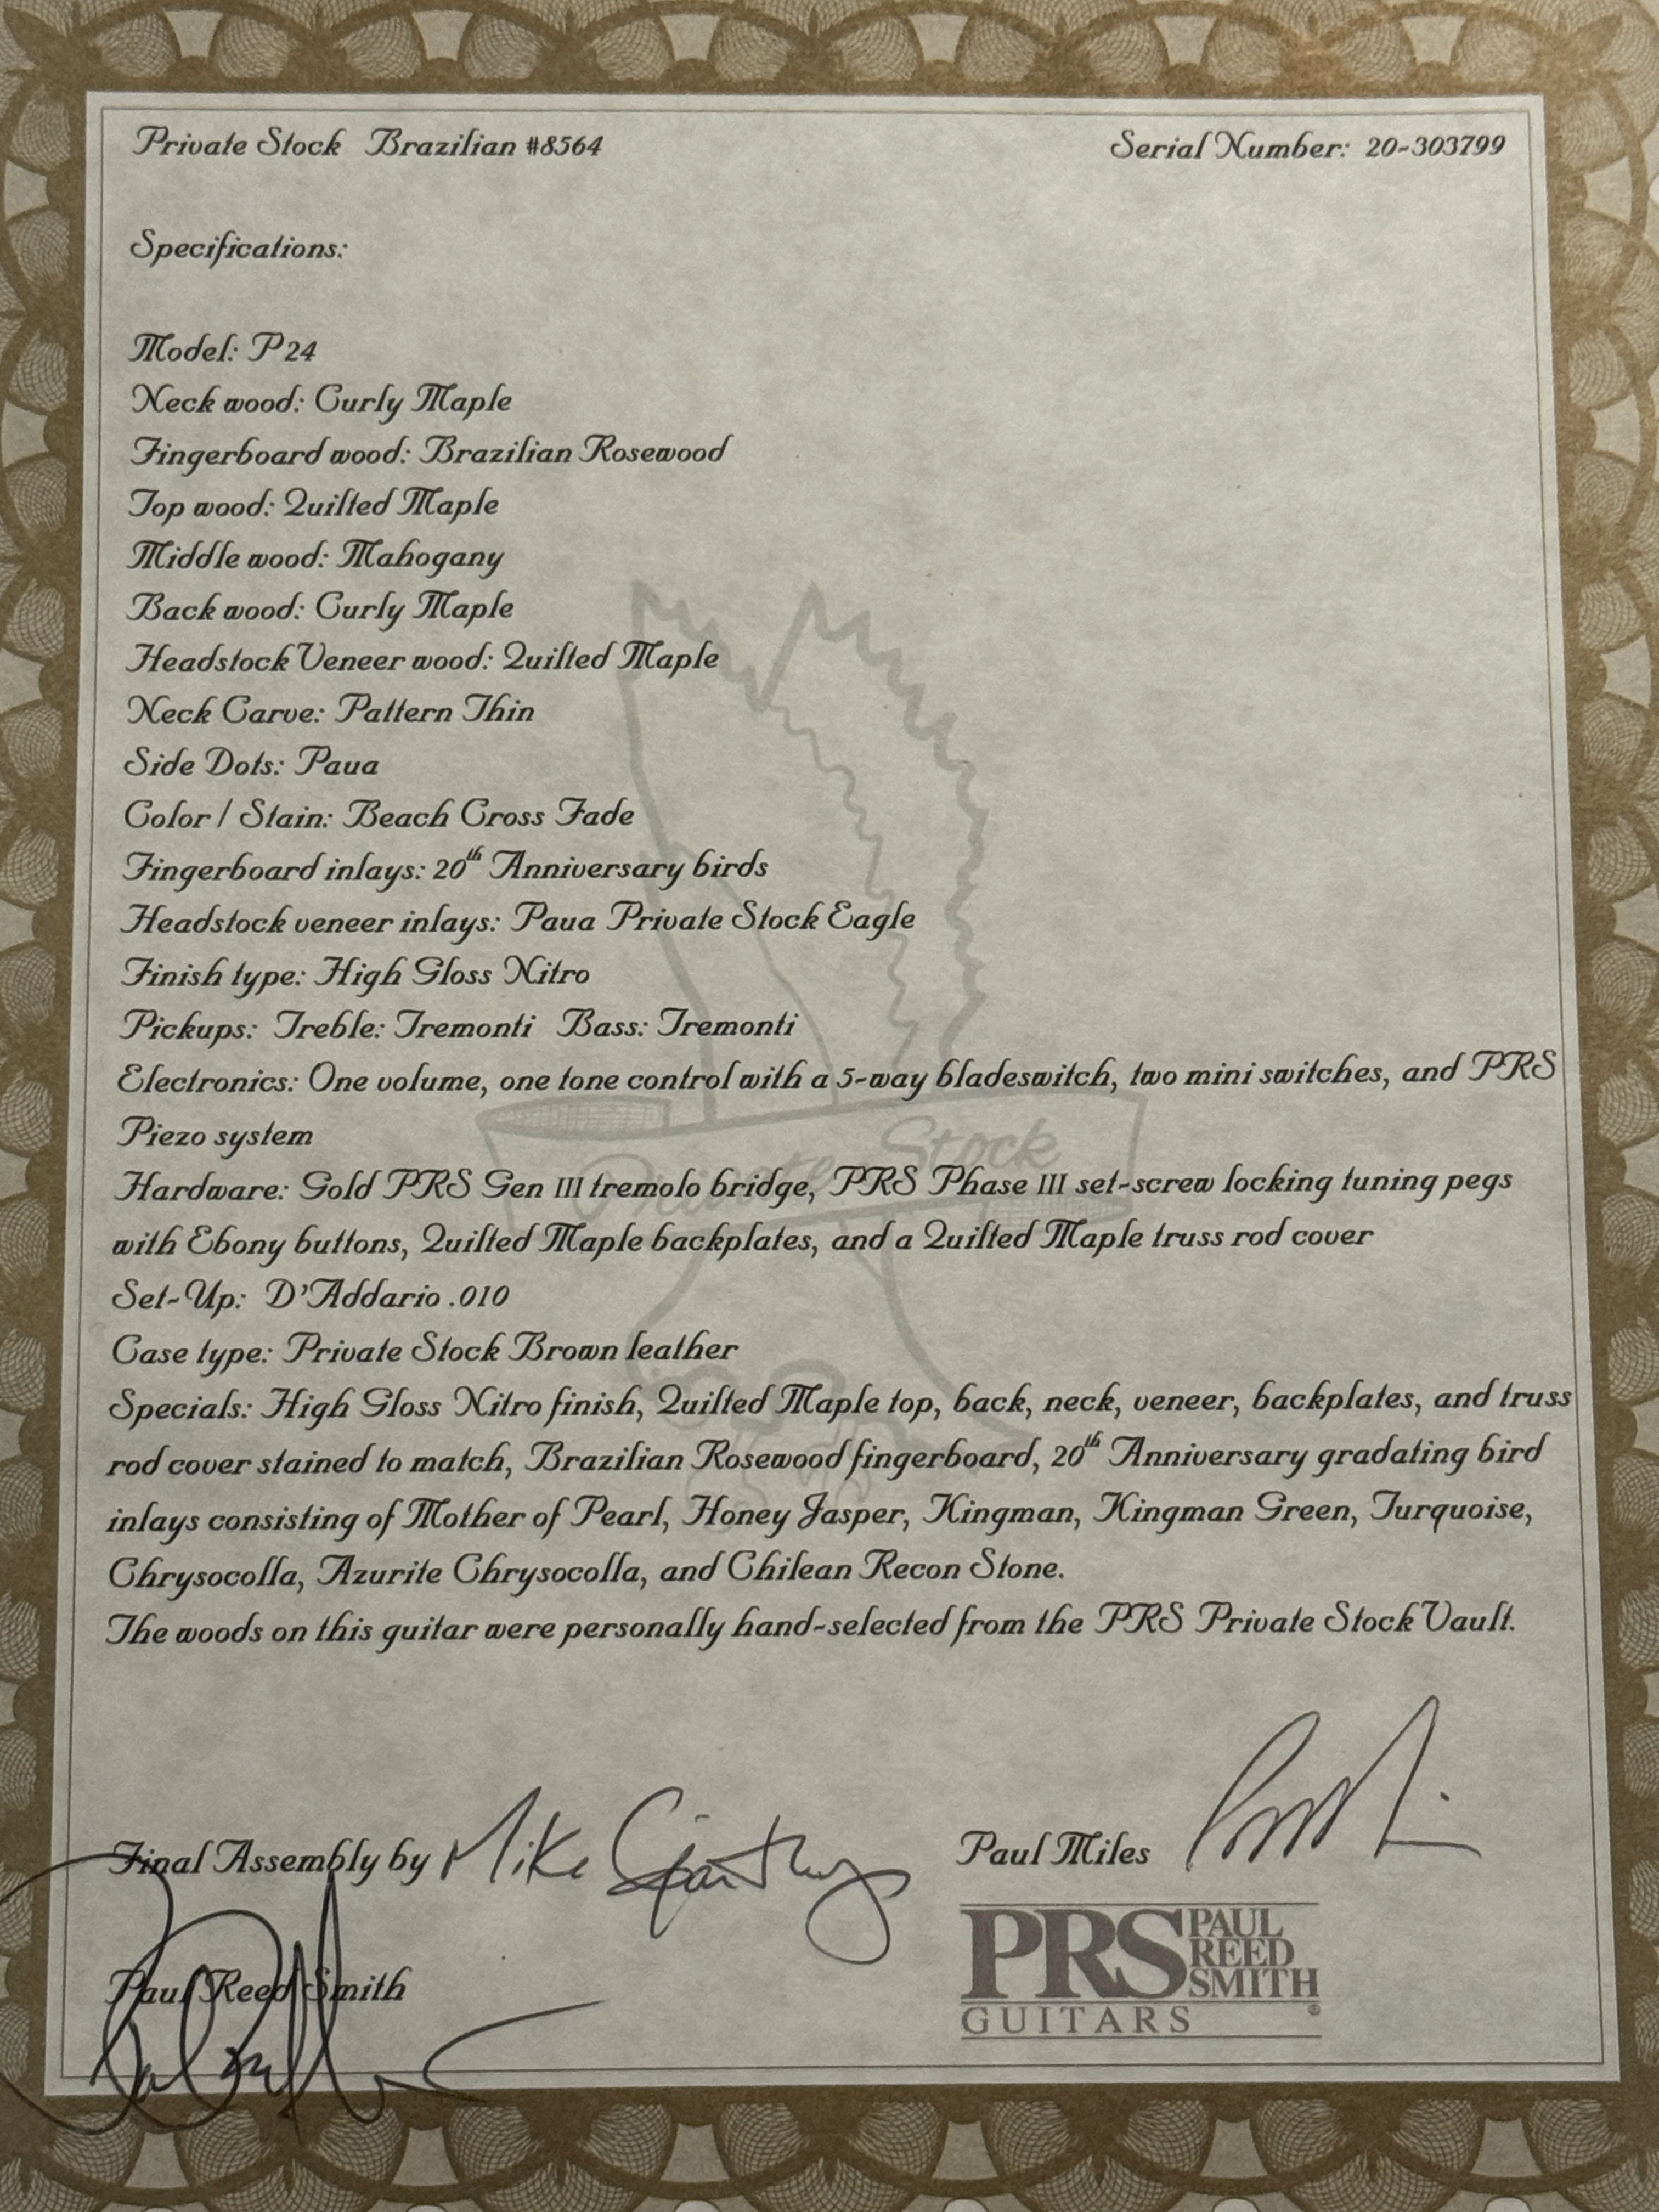 Private Stock Brazilian #8564 Serial Number: 20-303799
Specifications:
Model: P24
Neck wood: Curly Maple
Fingerboard wood: Brazilian Rosewood
Top wood: Quilted Maple
Middle wood: Mahogany
Back wood: Curly Maple
Headstock Veneer wood: Quilted Maple
Neck Carve: Pattern Thin
Side Dots: Paua
Color / Stain: Beach Cross Fade
Fingerboard inlays: 20th Anniversary birds
Headstock veneer inlays: Paua Private Stock Eagle
Finish type: High Gloss Nitro
Pickups: Treble: Tremonti Bass: Tremonti
Electronics: One volume, one tone control with a 5-way bladeswitch, two mini switches, and PRS
Piezo system
Hardware: Gold PRS Gen III tremolo bridge, PRS Phase III set-screw locking tuning pegs
with Ebony buttons, Quilted Maple backplates, and a Quilted Maple truss rod cover
Set-Up: D'Addario .010
Case type: Private Stock Brown leather
Specials: High Gloss Nitro finish, Quilted Maple top, back, neck, veneer, backplates, and truss
rod cover stained to match, Brazilian Rosewood fingerboard, 20th Anniversary gradating bird
inlays consisting of Mother of Pearl, Honey Jasper, Kingman, Kingman Green, Turquoise,
Chrysocolla, Azurite Chrysocolla, and Chilean Recon Stone.
The woods on this guitar were personally hand-selected from the PRS Private Stock Vault.
Private Stock
Final Assembly by Mike
Paul Miles
Paul Reed Smith
PRS PAUL
REED
SMITH
GUITARS ®